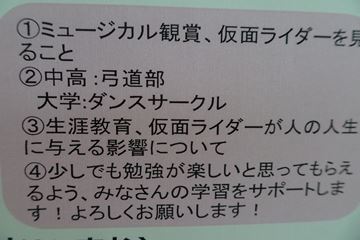 ①ミュージカル観賞、仮面ライダーを見
ること
②中高：弓道部
大学：ダンスサークル
③生涯教育、仮面ライダーが人の人生
に与える影響について
④少しでも勉強が楽しいと思ってもらえ
るよう、みなさんの学習をサポートしま
す！よろしくお願いします！